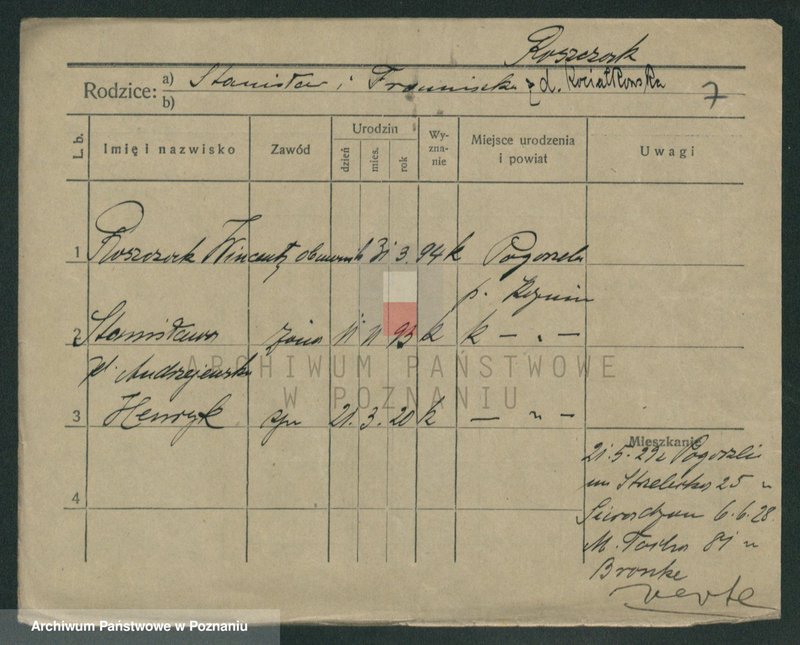 Roszczok
Rodzice: a) Stanisław i Franciszka z d. Kwiatkowska 7
b)
L. b. Imię i nazwisko Zawód Urodzin dzień mies. rok Wyznanie Miejsce urodzenia i powiat Uwagi
1 Roszczok Wincenty 31 3. 94 k Pogorzela
p.
2 Stanisława żona 11 11 93 k k — „ —
Andrzejewska
3 Henryk syn 21. 3. 20 k — „ —
Mieszkanie
21.5.29 z Pogorzeli
Strzelecka 25 u
4
6.6.28
M. Focha 81 u
Bronke
verte
ARCHIWUM PAŃSTWOWE
W POZNANIU
Archiwum Państwowe w Poznaniu